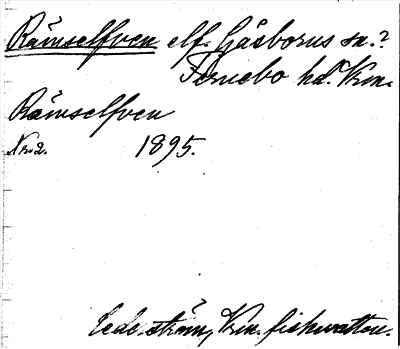 Rämselfven elf. Gåsborns sn.?
Fernebo hd. Vrm.
Rämselfven
1895.
Cederström, Vrm. fiskvatten.